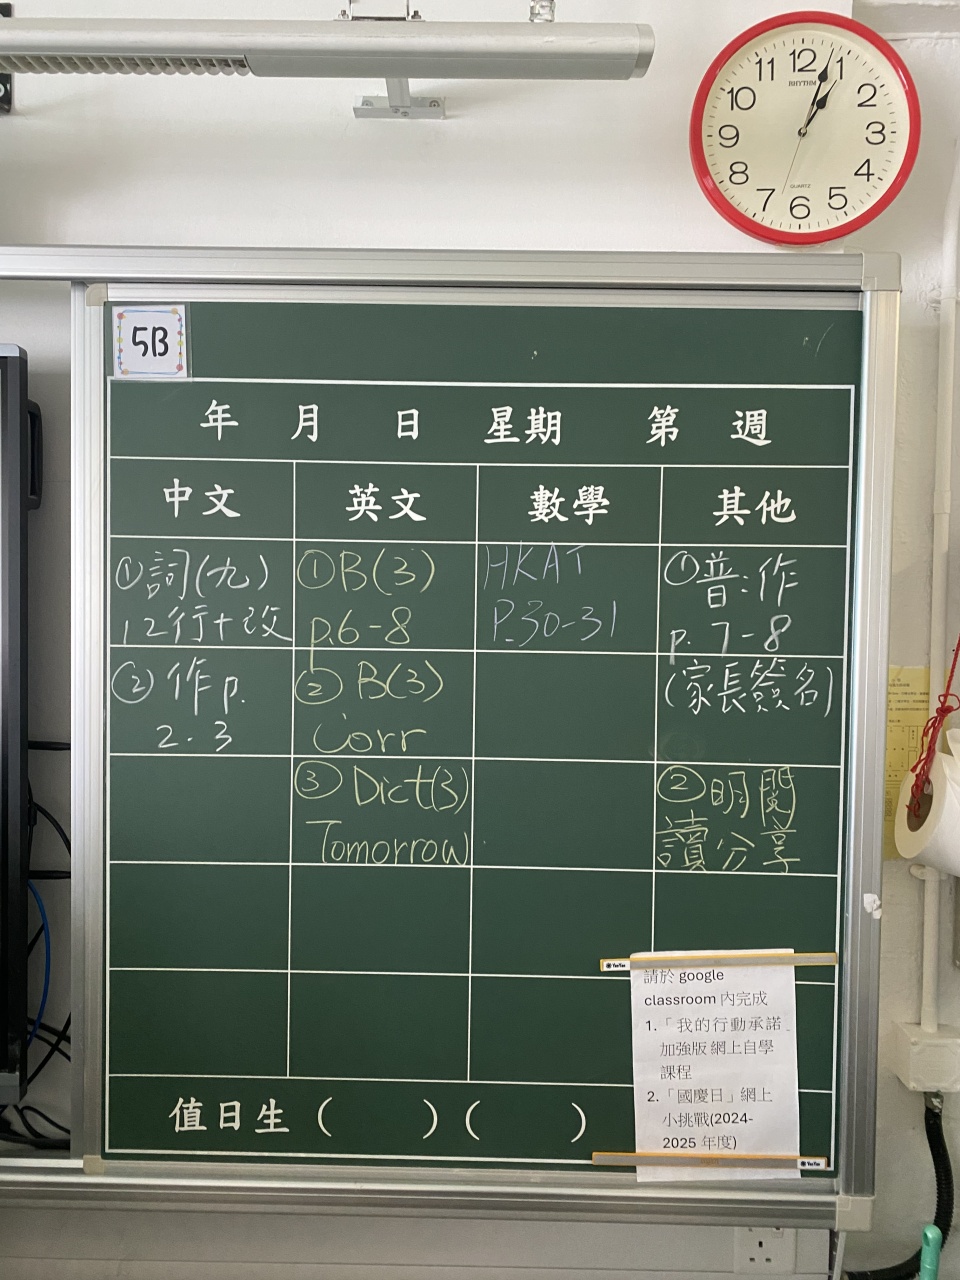 12
1
2
3
4
5
6
7
8
9
10
11
RHYTHM
QUARTZ
5B
年 月 日 星期 第 週
中文 英文 數學 其他
①詞(九)
12行+改
②作p.
2.3
①B(3)
p.6-8
②B(3)
Corr
③Dict(3)
Tomorrow
HKAT
P.30-31
①普:作
p.7-8
(家長簽名)
②明閱
讀分享
請於 google
classroom 內完成
1.「我的行動承諾
加強版 網上自學
課程
2.「國慶日」網上
小挑戰(2024-
2025 年度)
值日生 ( ) ( )
YooYoo
YooYoo